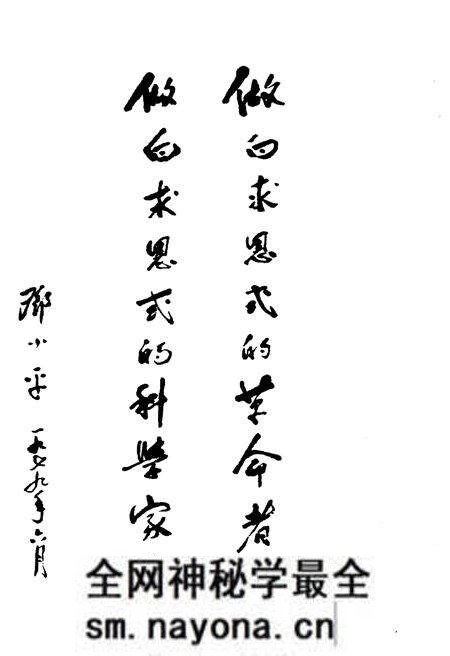 做白求恩式的革命者
做白求恩式的科学家
邓小平
一九七九年六月
全网神秘学最全
sm.nayona.cn